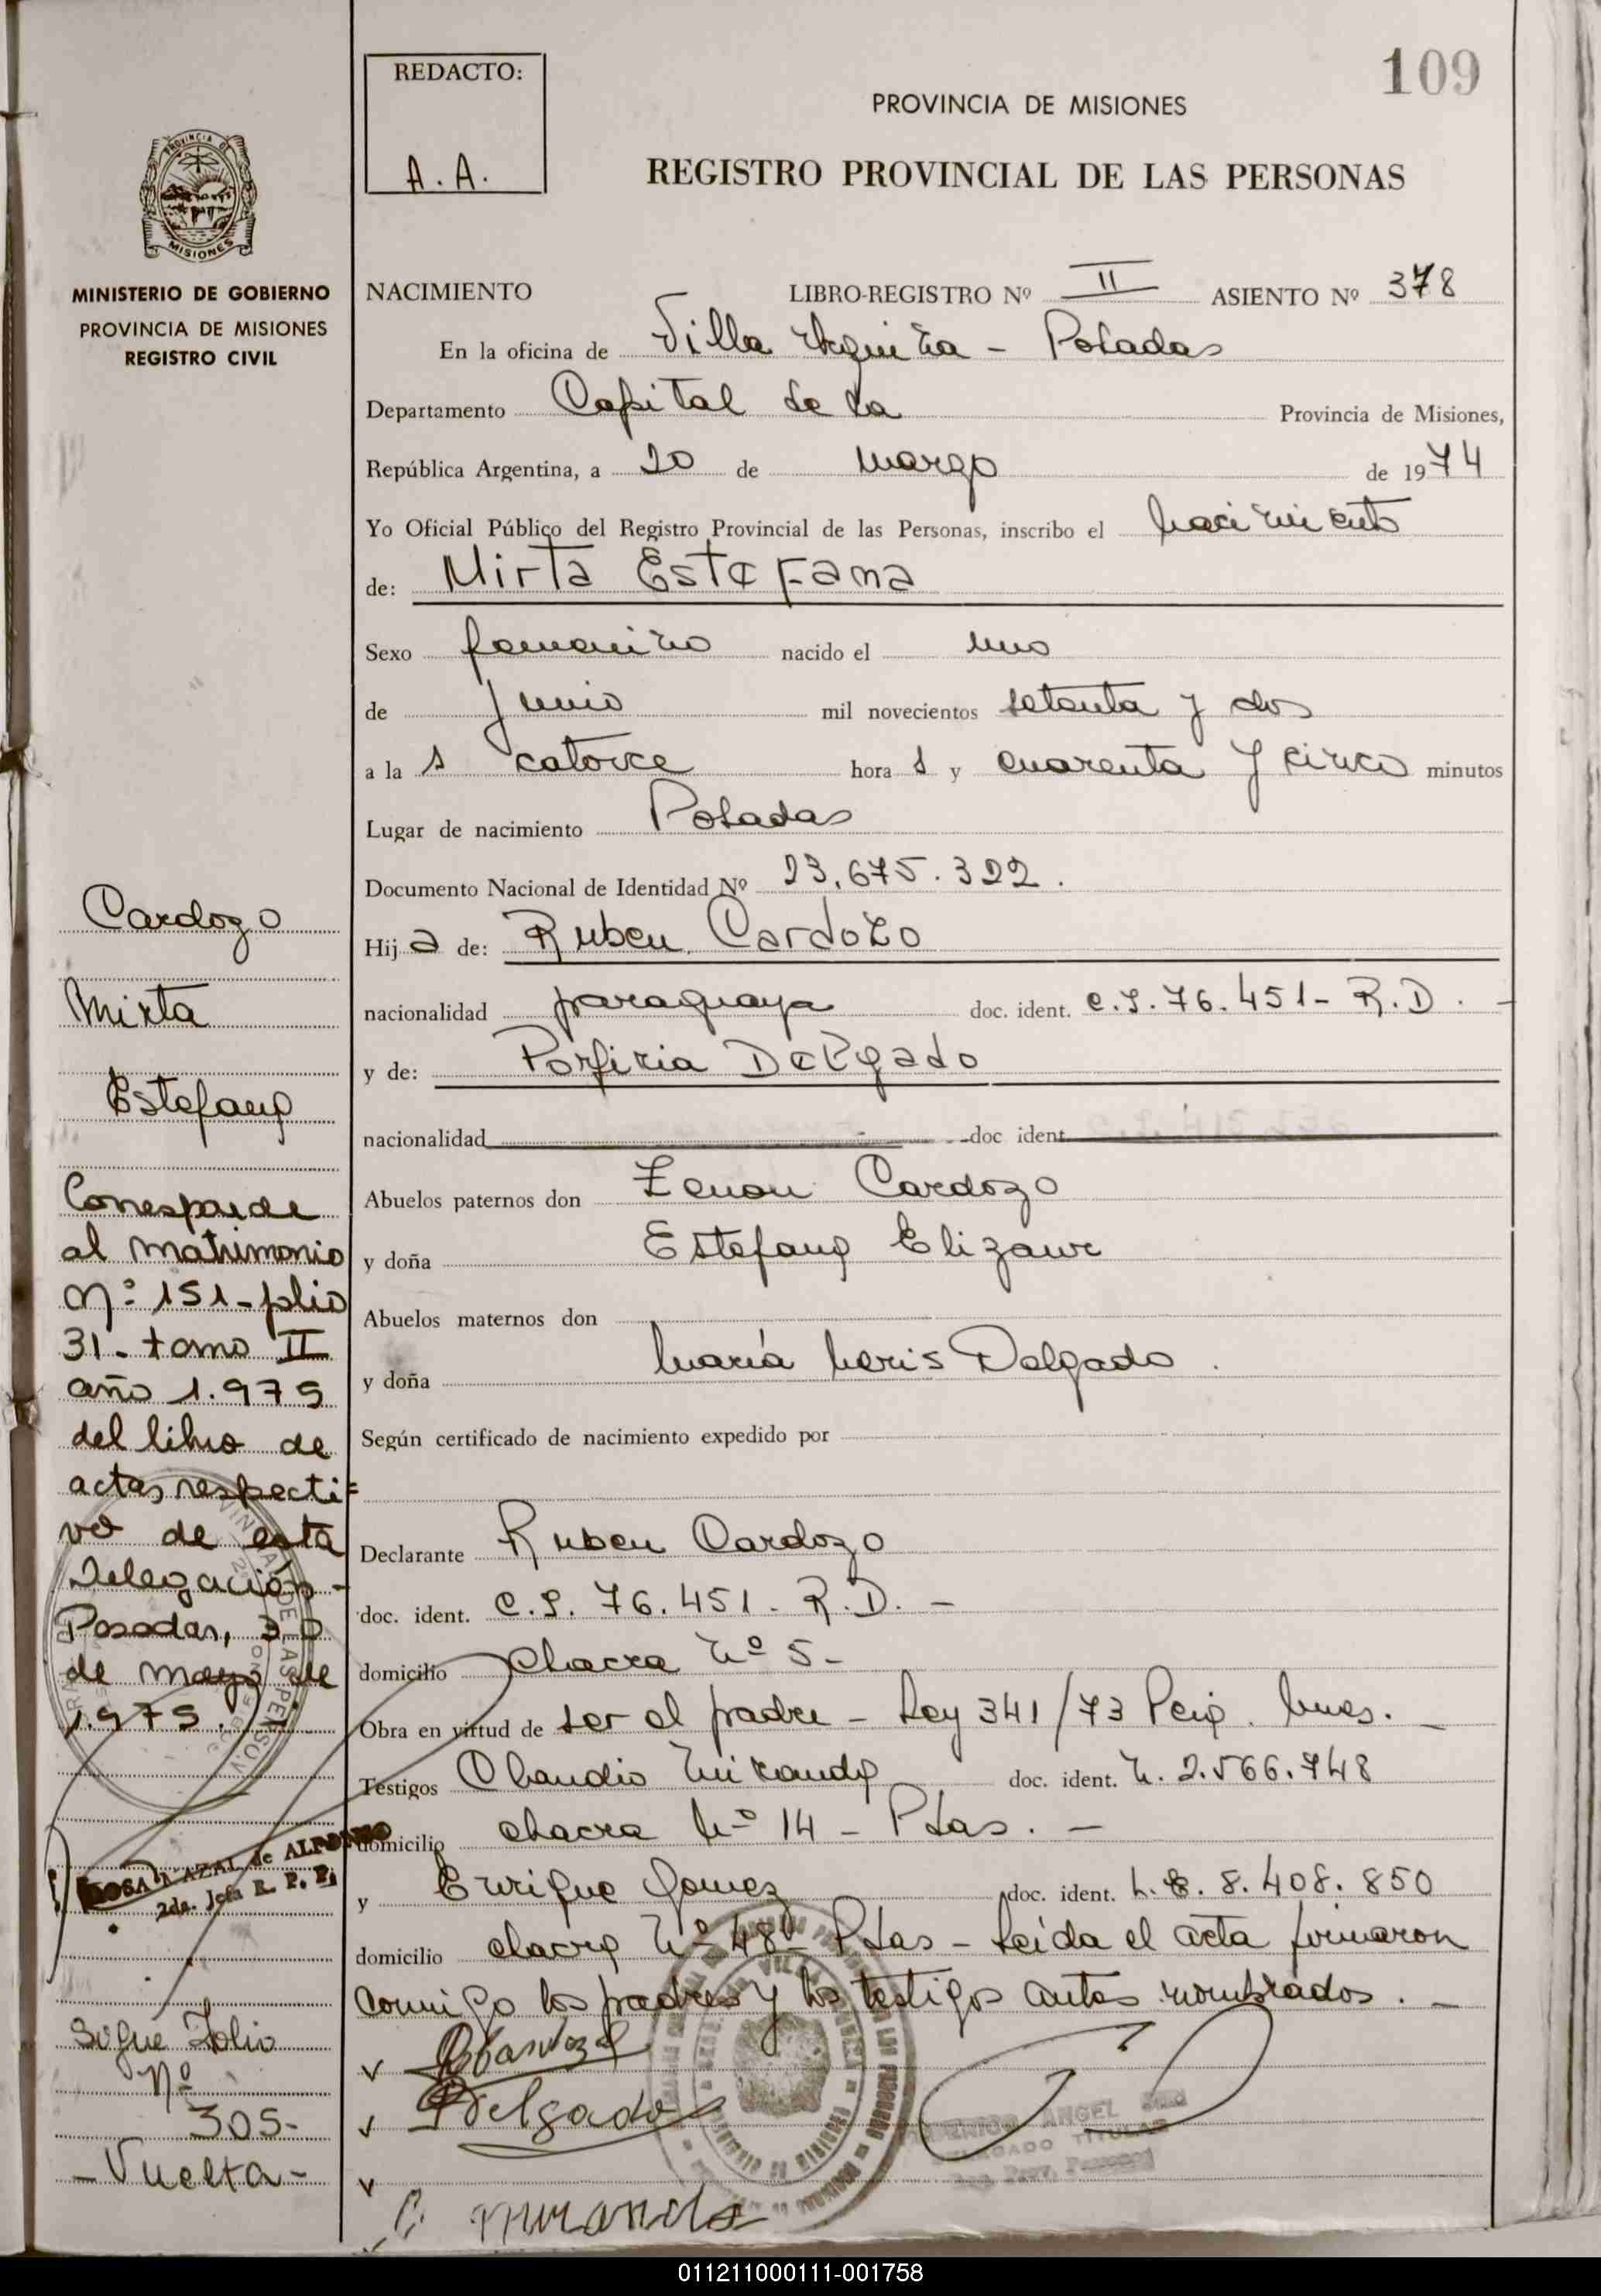 109
REDACTO:
A.A.
PROVINCIA DE MISIONES
REGISTRO PROVINCIAL DE LAS PERSONAS
MISIONES
MINISTERIO DE GOBIERNO
PROVINCIA DE MISIONES
REGISTRO CIVIL
NACIMIENTO LIBRO-REGISTRO Nº II ASIENTO Nº 378
En la oficina de Villa Urquiza - Posadas
Departamento Capital de la Provincia de Misiones,
República Argentina, a 20 de marzo de 1974
Yo Oficial Público del Registro Provincial de las Personas, inscribo el nacimiento
de: Mirta Estefana
Sexo femenino nacido el uno
de junio mil novecientos setenta y dos
a la s catorce hora s y cuarenta y cinco minutos
Lugar de nacimiento Posadas
Documento Nacional de Identidad Nº 23.675.322.
Hij a de: Ruben Cardozo
nacionalidad paraguaya doc. ident. C.I. 76.451- R.D. -
y de: Porfiria Delgado
nacionalidad doc ident
Abuelos paternos don Zenon Cardozo
y doña Estefana Elizaur
Abuelos maternos don
y doña María Delgado.
Según certificado de nacimiento expedido por
Declarante Ruben Cardozo
doc. ident. C.I. 76.451- R.D. -
domicilio chacra Nº 5-
Obra en virtud de ser el padre - Ley 341/73
Testigos Claudio Miranda doc. ident. 2.566.748
domicilio chacra Nº 14 - Pdas. -
y Enrique Gomez doc. ident. L.E. 8.408.850
domicilio chacra Nº 48 - Pdas - Leida el acta firmaron
conmigo los padres y los testigos antes nombrados. -
Delgado
C. Miranda
Cardozo
Mirta
Estefana
Corresponde
al matrimonio
Nº 151-folio
31- tomo II
año 1.975
del libro de
actas respecti-
vo de esta
Delegación-
Posadas, 30
de mayo de
1.975.
de ALFONSO
2da. Jefa R. P. P.
Sigue Folio
Nº
305-
-Vuelta-
011211000111-001758